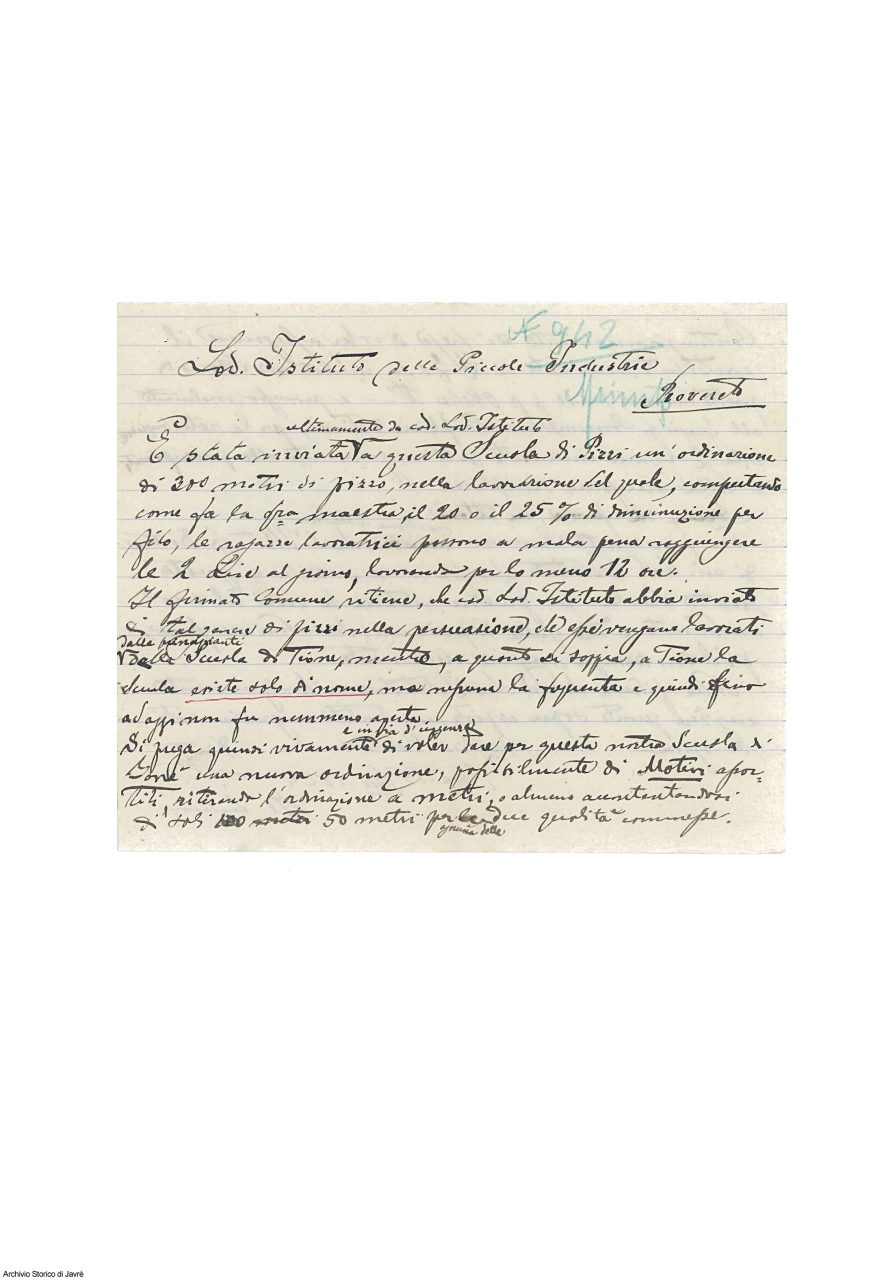 N 942
Lod. Istituto delle Piccole Industrie
Minuta
Rovereto
ultimamente da cod. Lod. Istituto
È stata inviata a questa Scuola di Pizzi un'ordinazione
di 300 metri di pizzo, nella lavorazione del quale, computando
come fa la Sra maestra, il 20 o il 25 % di diminuzione per
filo, le ragazze lavoratrici possono a mala pena raggiungere
le 2 Lire al giorno, lavorando per lo meno 12 ore.
Il firmato Comune ritiene, che cod. Lod. Istituto abbia inviato
di tal genere di pizzi nella persuasione, che essi vengano lavorati
dalle principianti
dalla Scuola di Tione, mentre, a quanto si sappia, a Tione la
Scuola esiste solo di nome, ma nessuna la frequenta e quindi fino
ad oggi non fu nemmeno aperta
e in via d'urgenza
Si prega quindi vivamente di voler dare per questa nostra Scuola di
Javrè una nuova ordinazione, possibilmente di Motivi assor-
titi, ritirando l'ordinazione a metri, o almeno accontentandosi
di soli 100 metri 50 metri per le due qualità commesse.
ognuna delle
Archivio Storico di Javrè